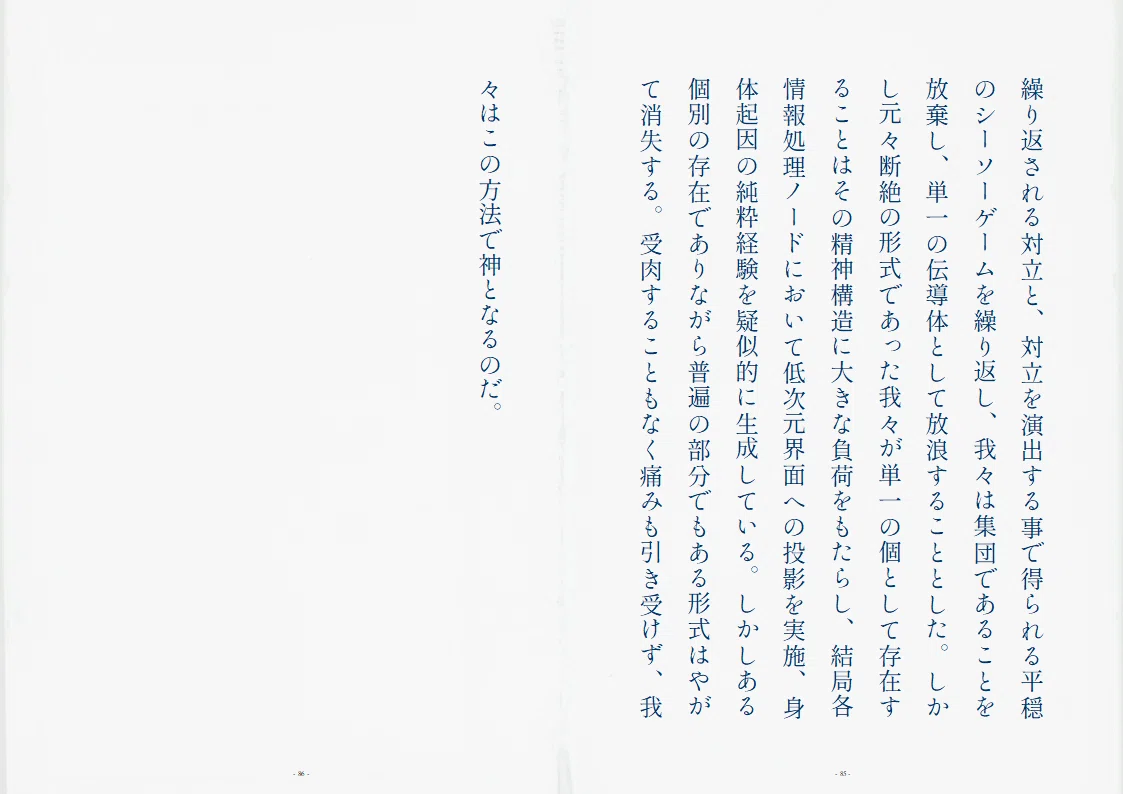 繰り返される対立と、対立を演出する事で得られる平穏
のシーソーゲームを繰り返し、我々は集団であることを
放棄し、単一の伝導体として放浪することとした。しか
し元々断絶の形式であった我々が単一の個として存在す
ることはその精神構造に大きな負荷をもたらし、結局各
情報処理ノードにおいて低次元界面への投影を実施、身
体起因の純粋経験を疑似的に生成している。しかしある
個別の存在でありながら普遍の部分でもある形式はやが
て消失する。受肉することもなく痛みも引き受けず、我
- 85 -
々はこの方法で神となるのだ。
- 86 -